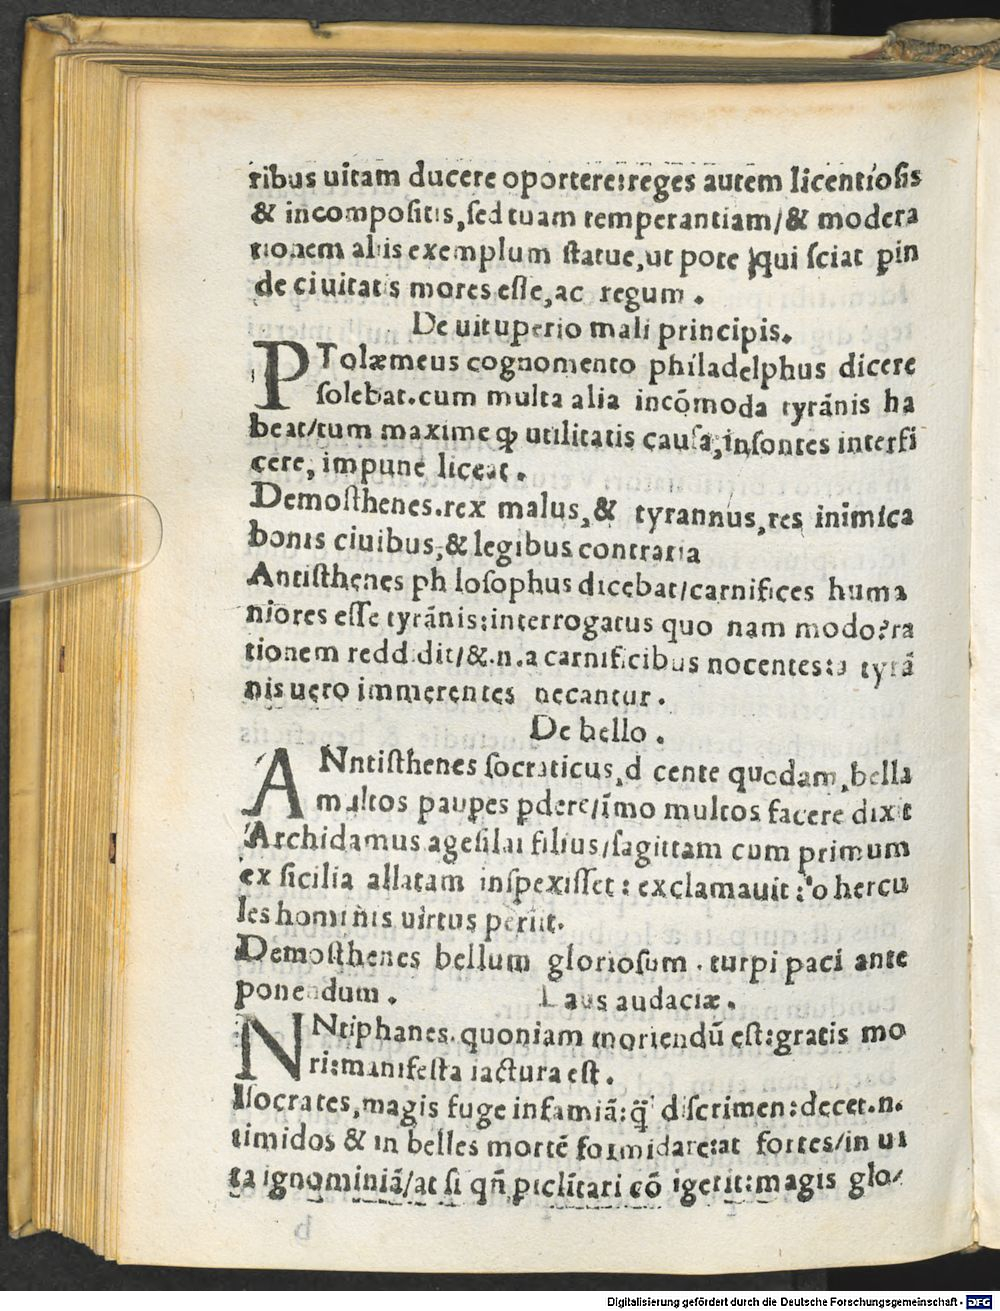 ribus uitam ducere oportere:reges autem licentiosis
& incompositis,sed tuam temperantiam/& modera
tionem aliis exemplum statue,ut pote qui sciat pin
de ciuitatis mores esse,ac regum.
De uituperio mali principis.
PTolæmeus cognomento philadelphus dicere
solebat.cum multa alia incõmoda tyrãnis ha
beat/tum maxime ꝙ utilitatis causa,insontes interfi
cere, impune liceat.
Demosthenes.rex malus,& tyrannus,res inimica
bonis ciuibus,& legibus contraria
Antisthenes ph losophus dicebat/carnifices huma
niores esse tyrãnis:interrogatus quo nam modo?ra
tionem redd dit/&.n.a carnificibus nocentes:a tyrã
nis uero immerentes necantur.
De bello.
ANntisthenes socraticus,d cente quodam,bella
multos paupes pdere/ĩmo multos facere dixit
Archidamus agesilai filius/sagittam cum primum
ex sicilia allatam inspexisset: exclamauit:'o hercu
les hominis uirtus periit.
Demosthenes bellum gloriosum.turpi paci ante
ponendum. Laus audaciæ.
NNtiphanes.quoniam moriendũ est:gratis mo
ri:manifesta iactura est.
Isocrates,magis fuge infamiã:q̃ discrimen:decet.n.
timidos & in belles mortẽ formidare:at fortes/in ui
ta ignominiã/at si qñ piclitari cõ igerit:magis glo/
b
Digitalisierung gefördert durch die Deutsche Forschungsgemeinschaft - DFG